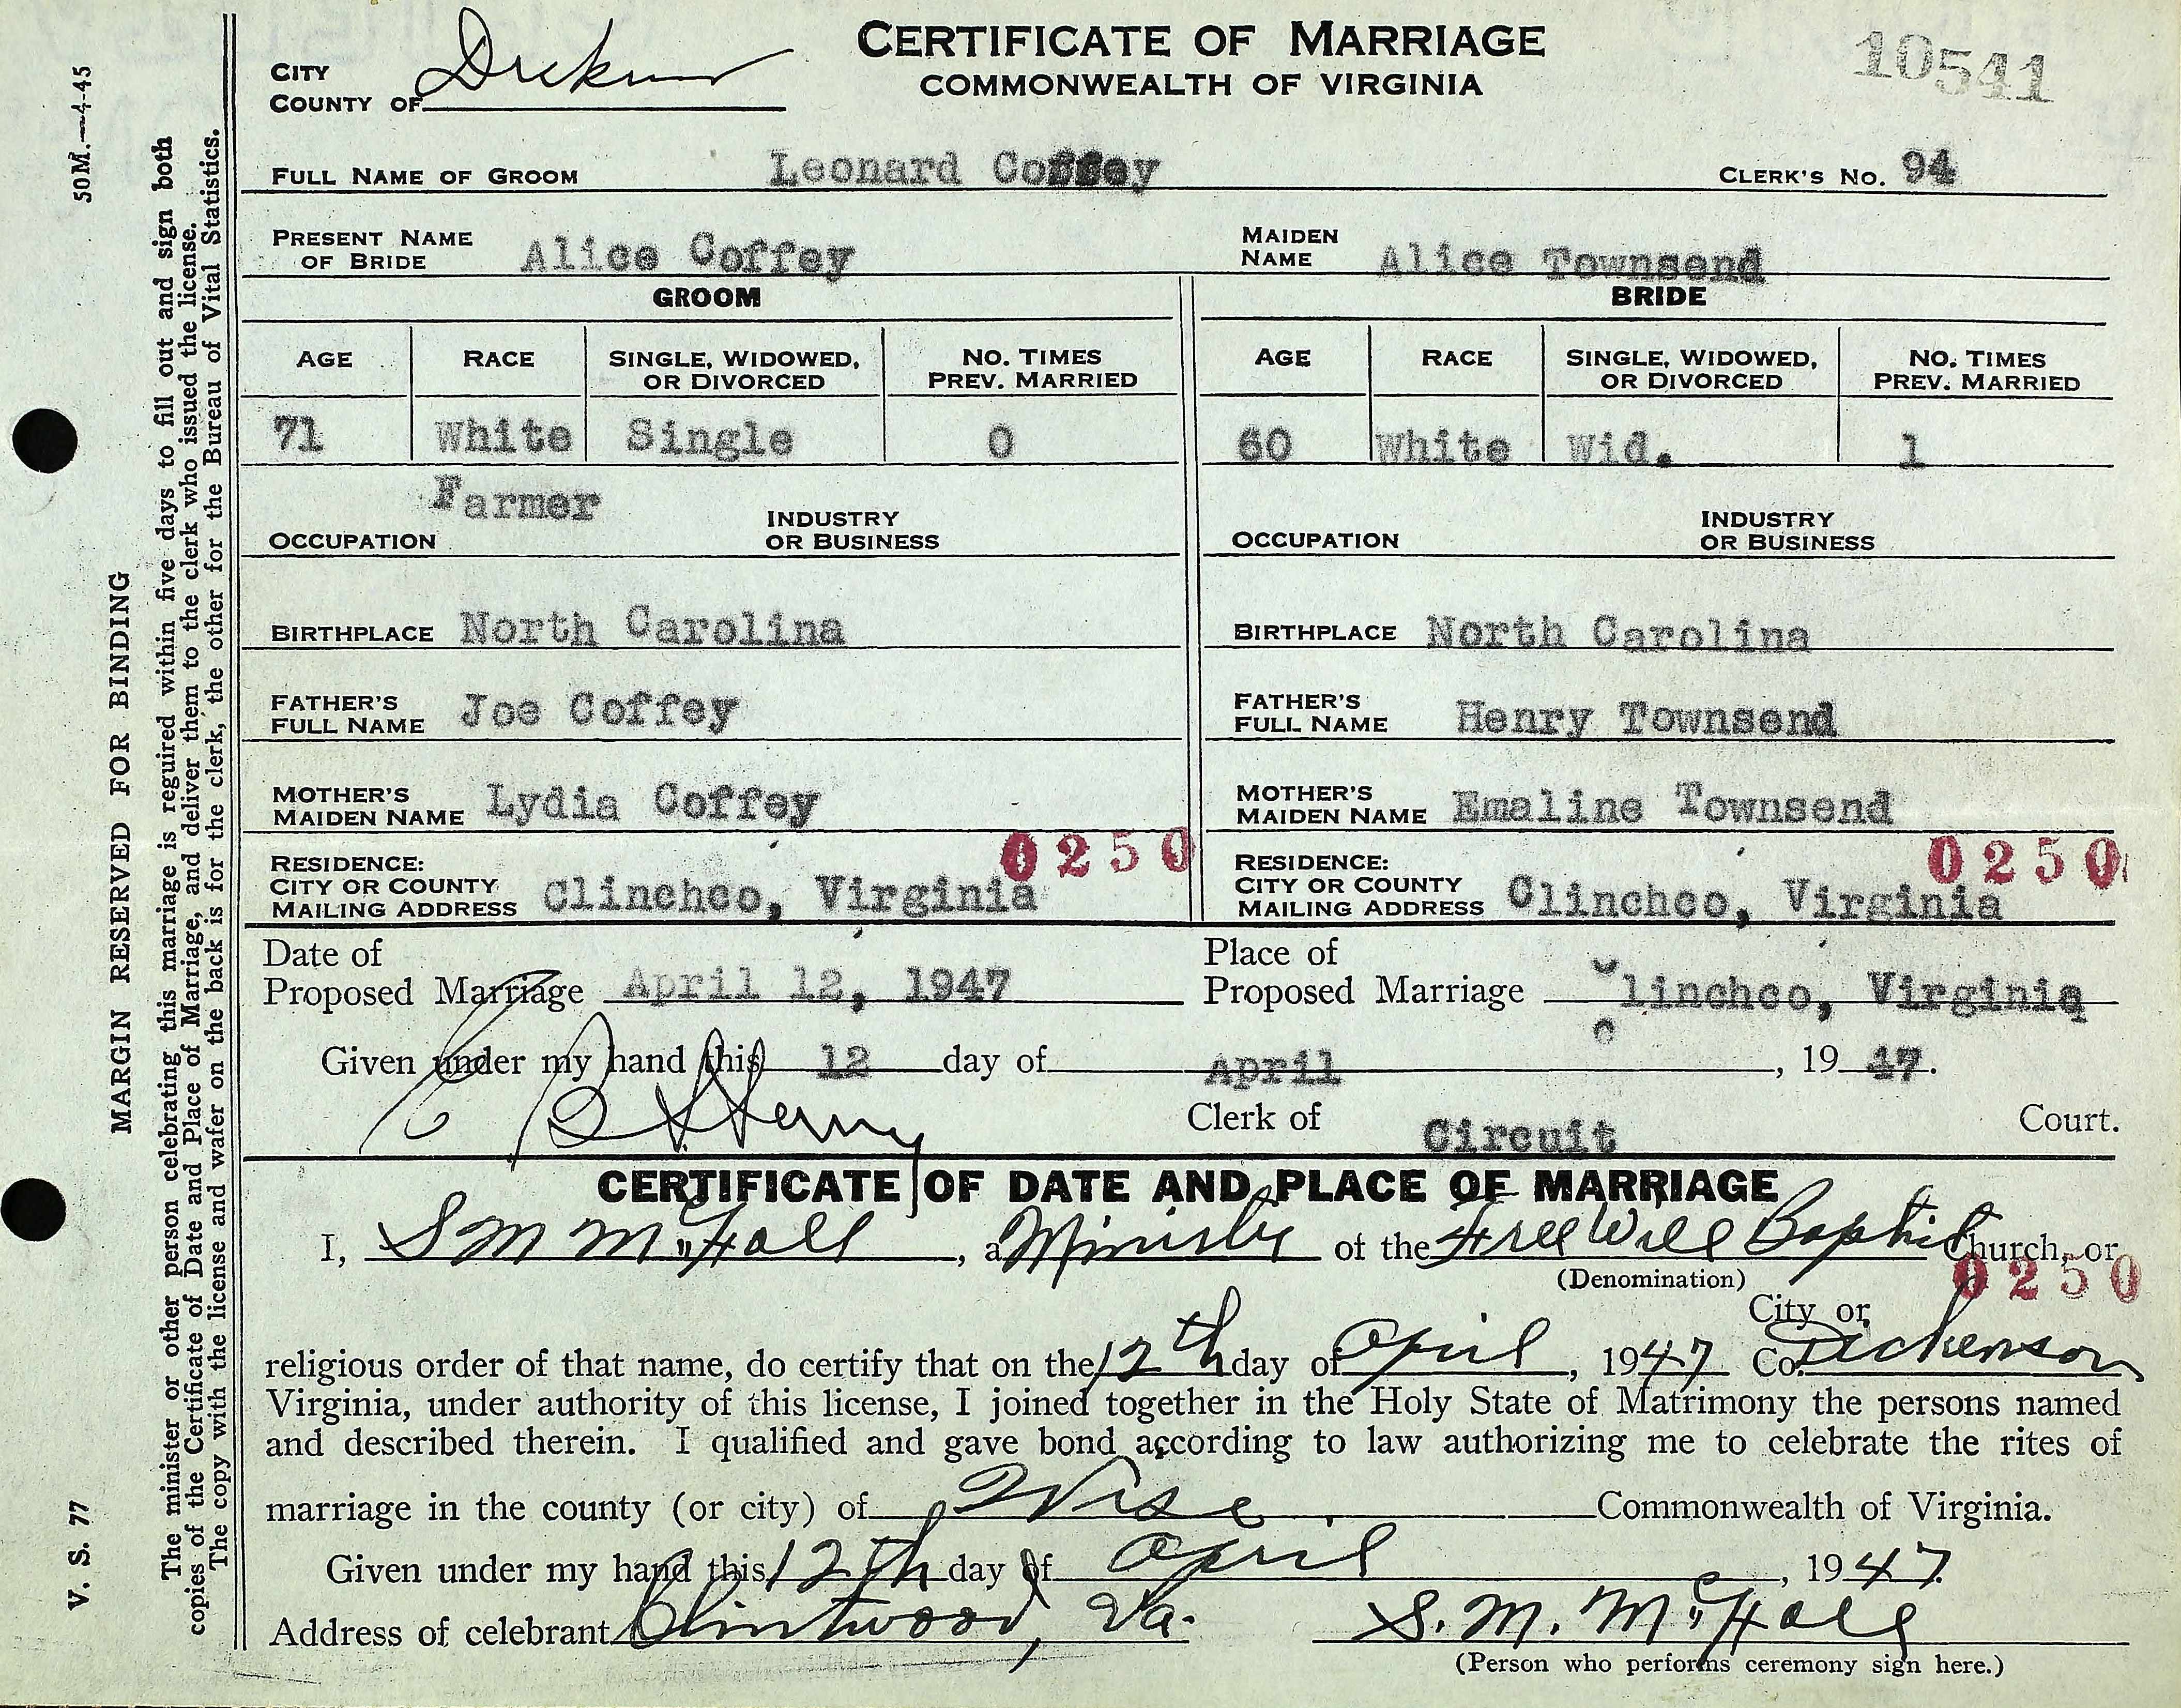 CERTIFICATE OF MARRIAGE
COMMONWEALTH OF VIRGINIA
10541
CITY
COUNTY OF
FULL NAME OF GROOM Leonard Coffey CLERK'S NO. 94
PRESENT NAME OF BRIDE Alice Coffey MAIDEN NAME Alice Townsend
GROOM BRIDE
AGE RACE SINGLE, WIDOWED, OR DIVORCED NO. TIMES PREV. MARRIED AGE RACE SINGLE, WIDOWED, OR DIVORCED NO. TIMES PREV. MARRIED
71 White Single 0 60 White Wid. 1
OCCUPATION Farmer INDUSTRY OR BUSINESS OCCUPATION INDUSTRY OR BUSINESS
BIRTHPLACE North Carolina BIRTHPLACE North Carolina
FATHER'S FULL NAME Joe Coffey FATHER'S FULL NAME Henry Townsend
MOTHER'S MAIDEN NAME Lydia Coffey MOTHER'S MAIDEN NAME Emaline Townsend
0250 0250
RESIDENCE: CITY OR COUNTY MAILING ADDRESS Clinchco, Virginia RESIDENCE: CITY OR COUNTY MAILING ADDRESS Clinchco, Virginia
Date of Proposed Marriage April 12, 1947 Place of Proposed Marriage Clinchco, Virginia
Given under my hand this 12 day of April, 1947.
Clerk of Circuit Court.
CERTIFICATE OF DATE AND PLACE OF MARRIAGE
I, S M , a of the Free Will Baptist Church, or
(Denomination)
0250
City or
religious order of that name, do certify that on the 12th day of April, 1947 Co. Dickenson
Virginia, under authority of this license, I joined together in the Holy State of Matrimony the persons named
and described therein. I qualified and gave bond according to law authorizing me to celebrate the rites of
marriage in the county (or city) of Wise. Commonwealth of Virginia.
Given under my hand this 12th day of April, 1947.
Address of celebrant Clintwood, Va. S. M.
(Person who performs ceremony sign here.)
50M.—4-45
MARGIN RESERVED FOR BINDING
V. S. 77
The minister or other person celebrating this marriage is required within five days to fill out and sign both
copies of the Certificate of Date and Place of Marriage, and deliver them to the clerk who issued the license.
The copy with the license and wafer on the back is for the clerk, the other for the Bureau of Vital Statistics.